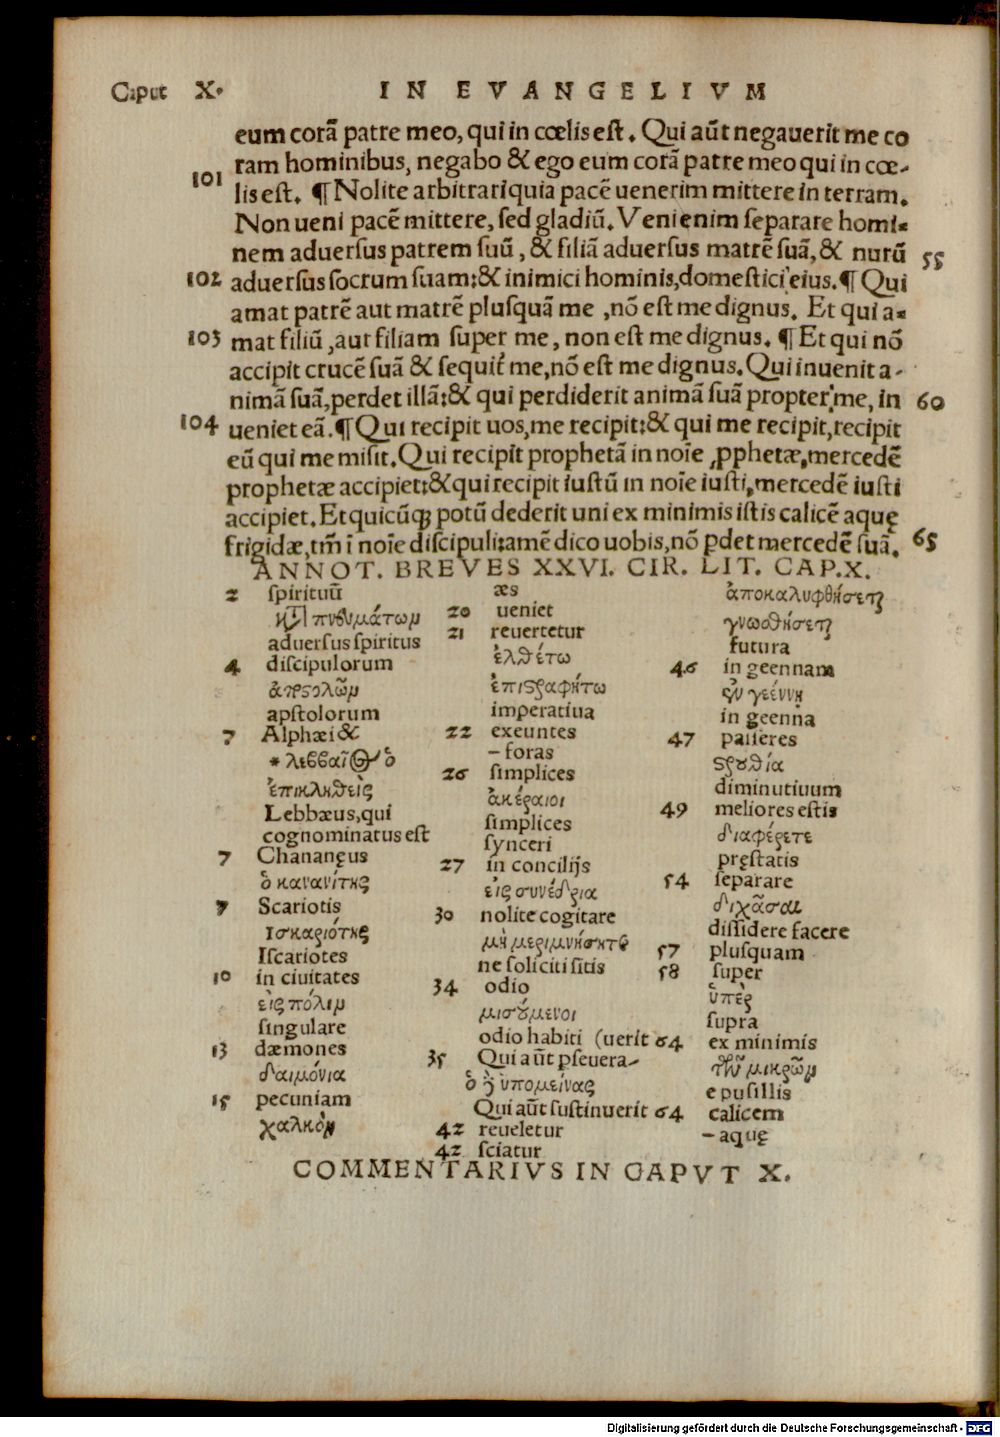 Caput X. IN EVANGELIVM
eum corā patre meo, qui in cœlis est. Qui aūt negauerit me co
ram hominibus, negabo & ego eum corā patre meo qui in cœ-
101 lis est. ¶ Nolite arbitrari quia pacē uenerim mittere in terram.
Non ueni pacē mittere, sed gladiū. Veni enim separare homi-
nem aduersus patrem suū, & filiā aduersus matrē suā, & nurū 55
102 aduersus socrum suam: & inimici hominis, domestici eius. ¶ Qui
amat patrē aut matrē plusquā me, nō est me dignus. Et qui a-
103 mat filiū, aut filiam super me, non est me dignus. ¶ Et qui nō
accipit crucē suā & sequit᷑ me, nō est me dignus. Qui inuenit a-
nimā suā, perdet illā: & qui perdiderit animā suā propter me, in 60
104 ueniet eā. ¶ Qui recipit uos, me recipit: & qui me recipit, recipit
eū qui me misit. Qui recipit prophetā in noīe ꝓphetæ, mercedē
prophetæ accipiet: & qui recipit iustū in noīe iusti, mercedē iusti
accipiet. Et quicūꝙ potū dederit uni ex minimis istis calicē aquę
frigidæ, tm̄ ī noīe discipuli: amē dico uobis, nō ꝑdet mercedē suā. 65
ANNOT. BREVES XXVI. CIR. LIT. CAP. X.
2 spirituū
κατὰ πνευμάτων
aduersus spiritus
4 discipulorum
ἀποστόλων
apstolorum
7 Alphæi &
* λεββαῖος ὁ
ἐπικληθεὶς
Lebbæus, qui
cognominatus est
7 Chananęus
ὁ κανανίτης
7 Scariotis
ισκαριότης
Iscariotes
10 in ciuitates
εἰς πόλιν
singulare
13 dæmones
δαιμόνια
15 pecuniam
χαλκὸν
æs
20 ueniet
21 reuertetur
ἐλθέτω
ἐπιστραφήτω
imperatiua
22 exeuntes
– foras
26 simplices
ἀκέραιοι
simplices
synceri
27 in concilijs
εἰς συνέδρια
30 nolite cogitare
μὴ μεριμνήσητε
ne soliciti sitis
34 odio
μισούμενοι
odio habiti (uerit
35 Qui aūt pseuera-
ὁ δὲ ὑπομείνας
Qui aūt sustinuerit
42 reueletur
42 sciatur
ἀποκαλυφθήσεται
γνωσθήσεται
futura
46 in geennam
ἐν γεέννῃ
in geenna
47 passeres
στρουθία
diminutiuum
49 meliores estis
διαφέρετε
pręstatis
54 separare
διχᾶσαι
dissidere facere
57 plusquam
58 super
ὑπὲρ
supra
64 ex minimis
τῶν μικρῶν
e pusillis
64 calicem
– aquę
COMMENTARIVS IN CAPVT X.
Digitalisierung gefördert durch die Deutsche Forschungsgemeinschaft - DFG